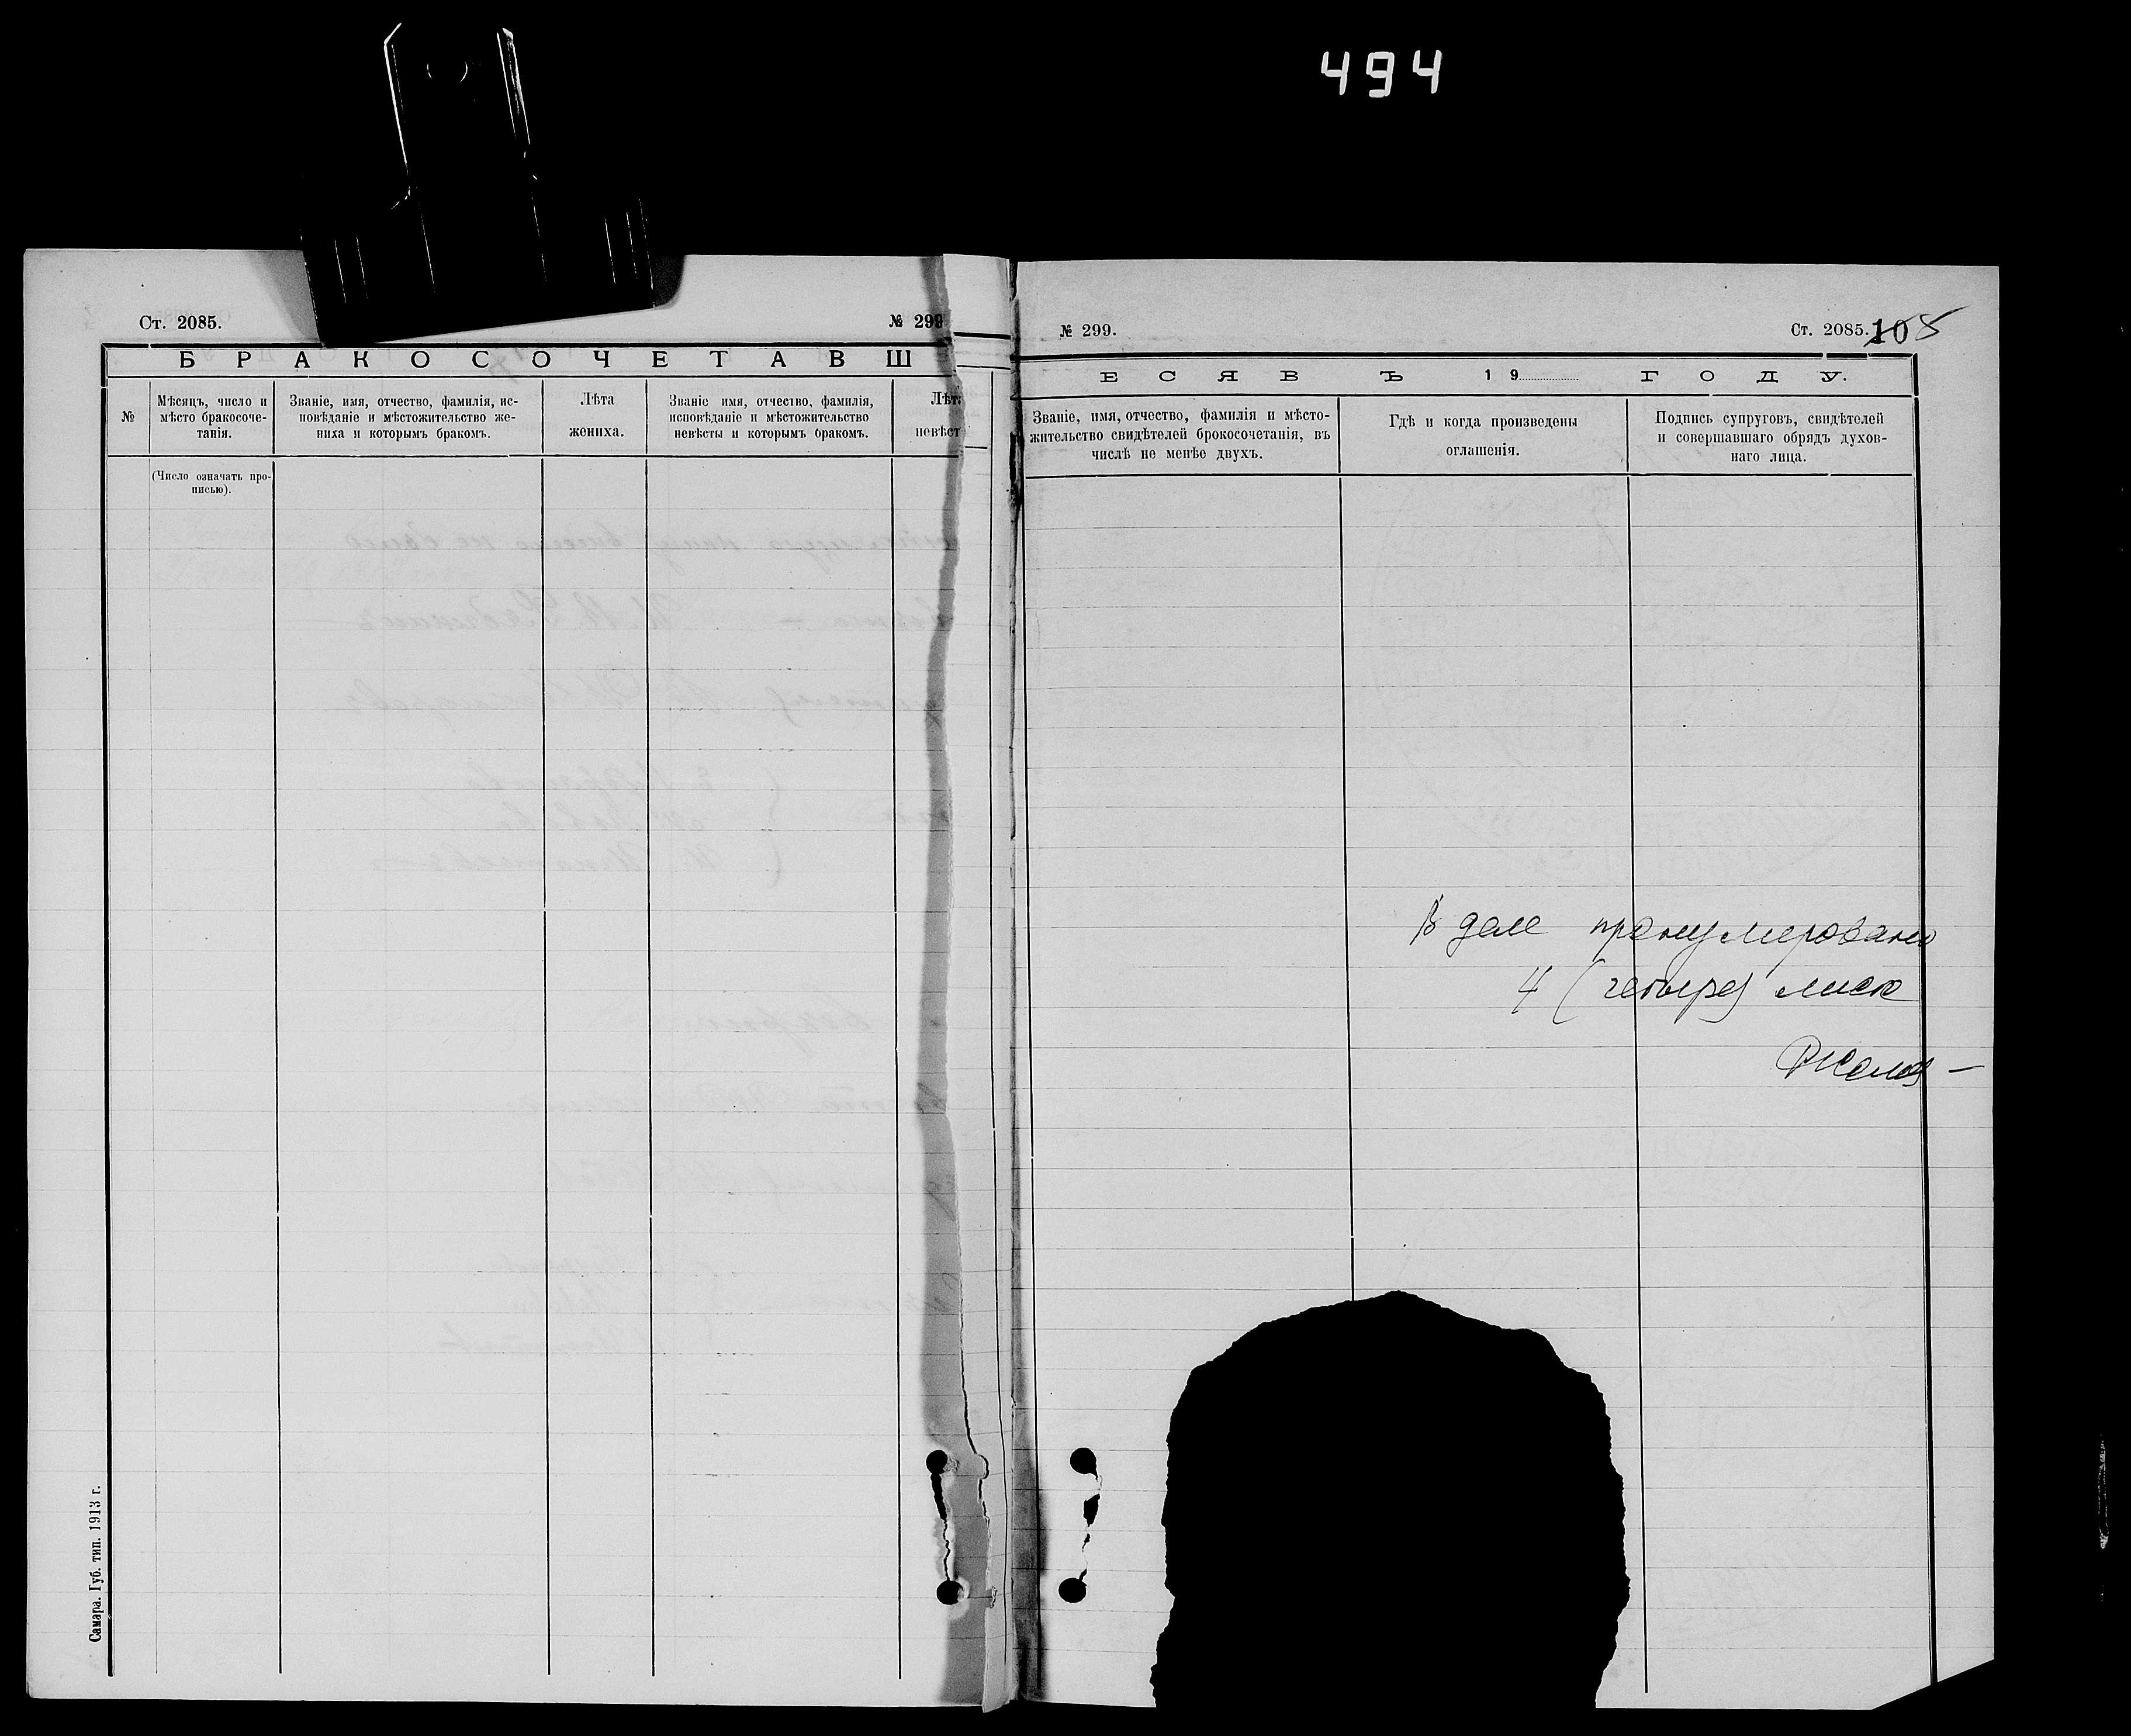 494
Ст. 2085.
№ 299
БРАКОСОЧЕТАВШ
№
Мѣсяцъ, число и
мѣсто бракосоче-
танія.
Званіе, имя, отчество, фамилія, ис-
повѣданіе и мѣстожительство же-
ниха и которымъ бракомъ.
Лѣта
жениха.
Званіе имя, отчество, фамилія,
исповѣданіе и мѣстожительство
невѣсты и которымъ бракомъ.
Лѣта
невѣст
(Число означать про-
писью).
Самара. Губ. тип. 1913 г.
№ 299.
Ст. 2085.
10 8
ЕСЯ ВЪ 19 ГОДУ.
Званіе, имя, отчество, фамилія и мѣсто-
жительство свидѣтелей брокосочетанія, въ
числѣ не менѣе двухъ.
Гдѣ и когда произведены
оглашенія.
Подпись супруговъ, свидѣтелей
и совершавшаго обрядъ духов-
наго лица.
В деле пронумеровано
4 (четыре)